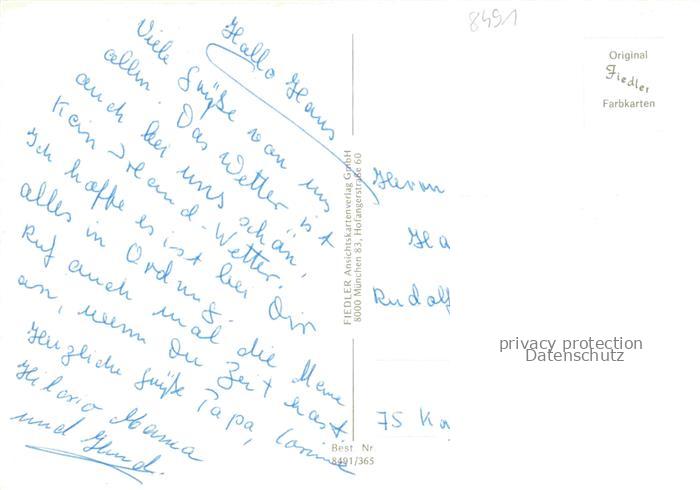 Hallo Hans
Viele Grüße von uns
allen. Das Wetter ist
auch bei uns schön,
kein Strand-Wetter.
Ich hoffe es ist bei Dir
alles in Ordnung.
Ruf auch mal die Meme
an, wenn Du Zeit hast.
Herzliche Grüße Papa,
Mama
und Hund.
8491
Original
Fiedler
Farbkarten
FIEDLER Ansichtskartenverlag GmbH
8000 München 83, Hofangerstraße 60
Herrn
Ha
Rudolf
75 Ka
privacy protection
Datenschutz
Best Nr
8491/365